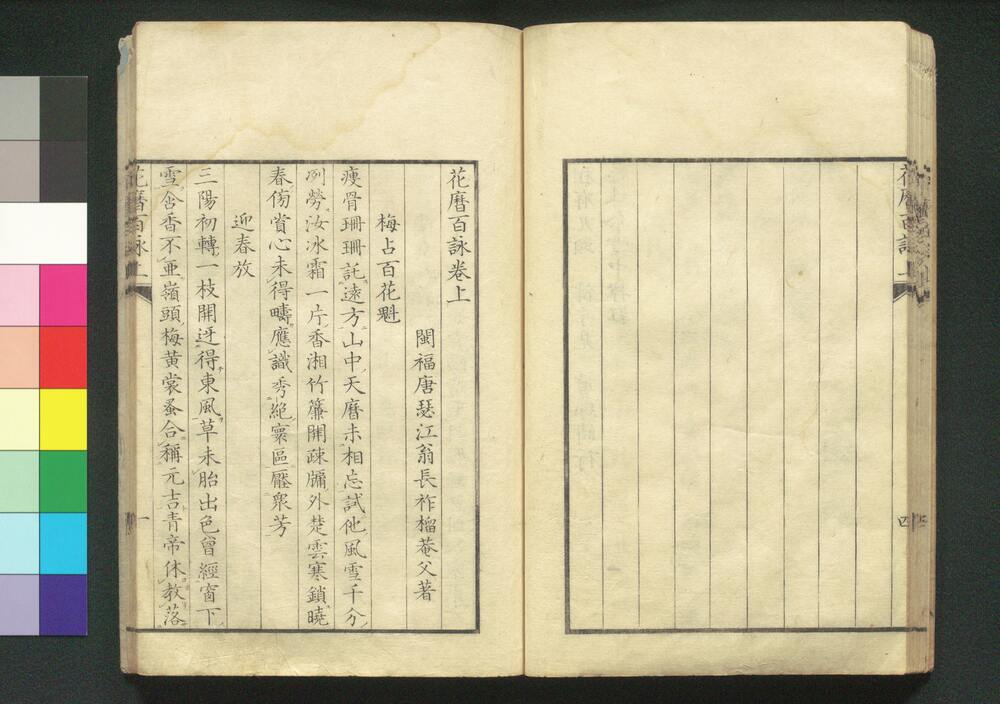 四
花曆百詠卷上
閩福唐瑟江翁長祚榴菴父著
梅占百花魁
瘦骨珊珊託遠方山中天曆未相忘試他風雪千分
冽勞汝冰霜一片香湘竹簾開疎牖外楚雲寒鎖曉
春傍賞心未得疇應識秀絕寰區壓衆芳
迎春放
三陽初轉一枝開迓得東風草未胎出色曾經窗下
雪含香不亜嶺頭梅黃裳蚤合稱元吉青帝休教落
花曆百詠上
一